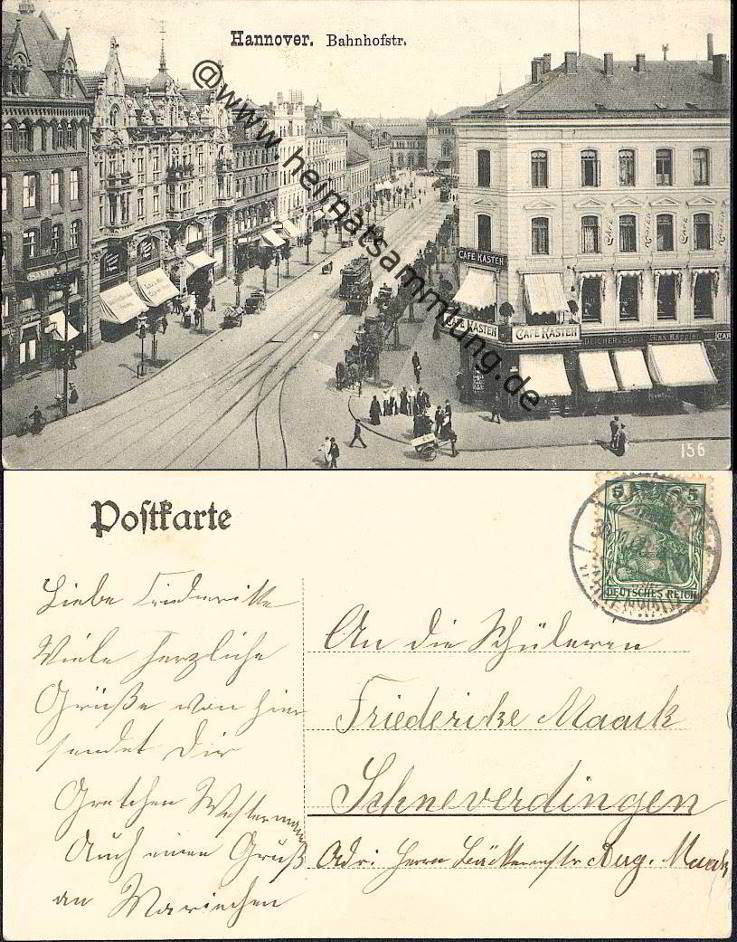 Hannover. Bahnhofstr.
@www.heimatsammlung.de
CAFÉ KASTEN
CAFÉ KASTEN
CAFÉ KASTEN
156
Postkarte
5
DEUTSCHES REICH
Liebe Friederikke
Viele herzliche
Grüße von hier
sendet Dir
Gretchen Westermann
Auch einen Gruß
an Mariechen
An die Schülerin
Friederike Maack
Schneverdingen
Adr: Herrn Bäckermstr Aug. Maack